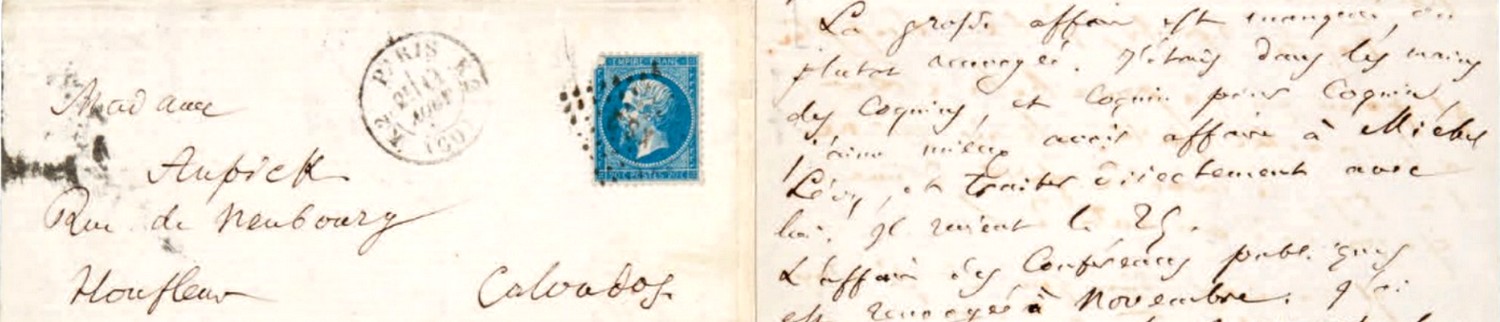 Madame
Aupick
Rue de Neubourg
Honfleur
Calvados.
PARIS
EMPIRE FRANC
20 C POSTES 20 C
La grosse affaire est manquée, ou
plutôt renvoyée. J'étais dans les mains
des Coquins, et Coquin pour Coquin,
j'aime mieux avoir affaire à Michel
Lévy, et traiter directement avec
lui. Il revient le 25.
L'affaire des Conférences publiques
est renvoyée à Novembre. J'ai